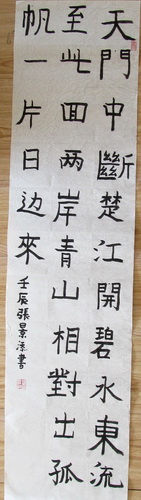 天門中斷楚江開碧水東流
至此回两岸青山相對出孤
帆一片日边來
壬辰張景漆書